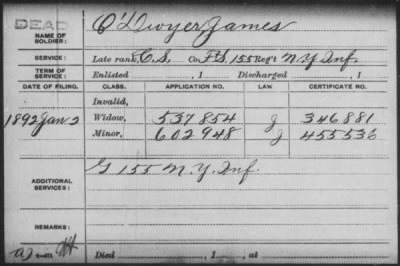 DEAD
NAME OF SOLDIER: O'Dwyer James
SERVICE: Late rank, C.S., Co. F&S, 155 Reg't N.Y. Inf.
TERM OF SERVICE: Enlisted , 1 Discharged , 1
DATE OF FILING. CLASS. APPLICATION NO. LAW. CERTIFICATE NO.
Invalid,
Widow, 537854 J 346881
1892 Jan 2 Minor, 602948 J 455536
ADDITIONAL SERVICES: G 155 N.Y. Inf.
REMARKS:
Died , 1 , at